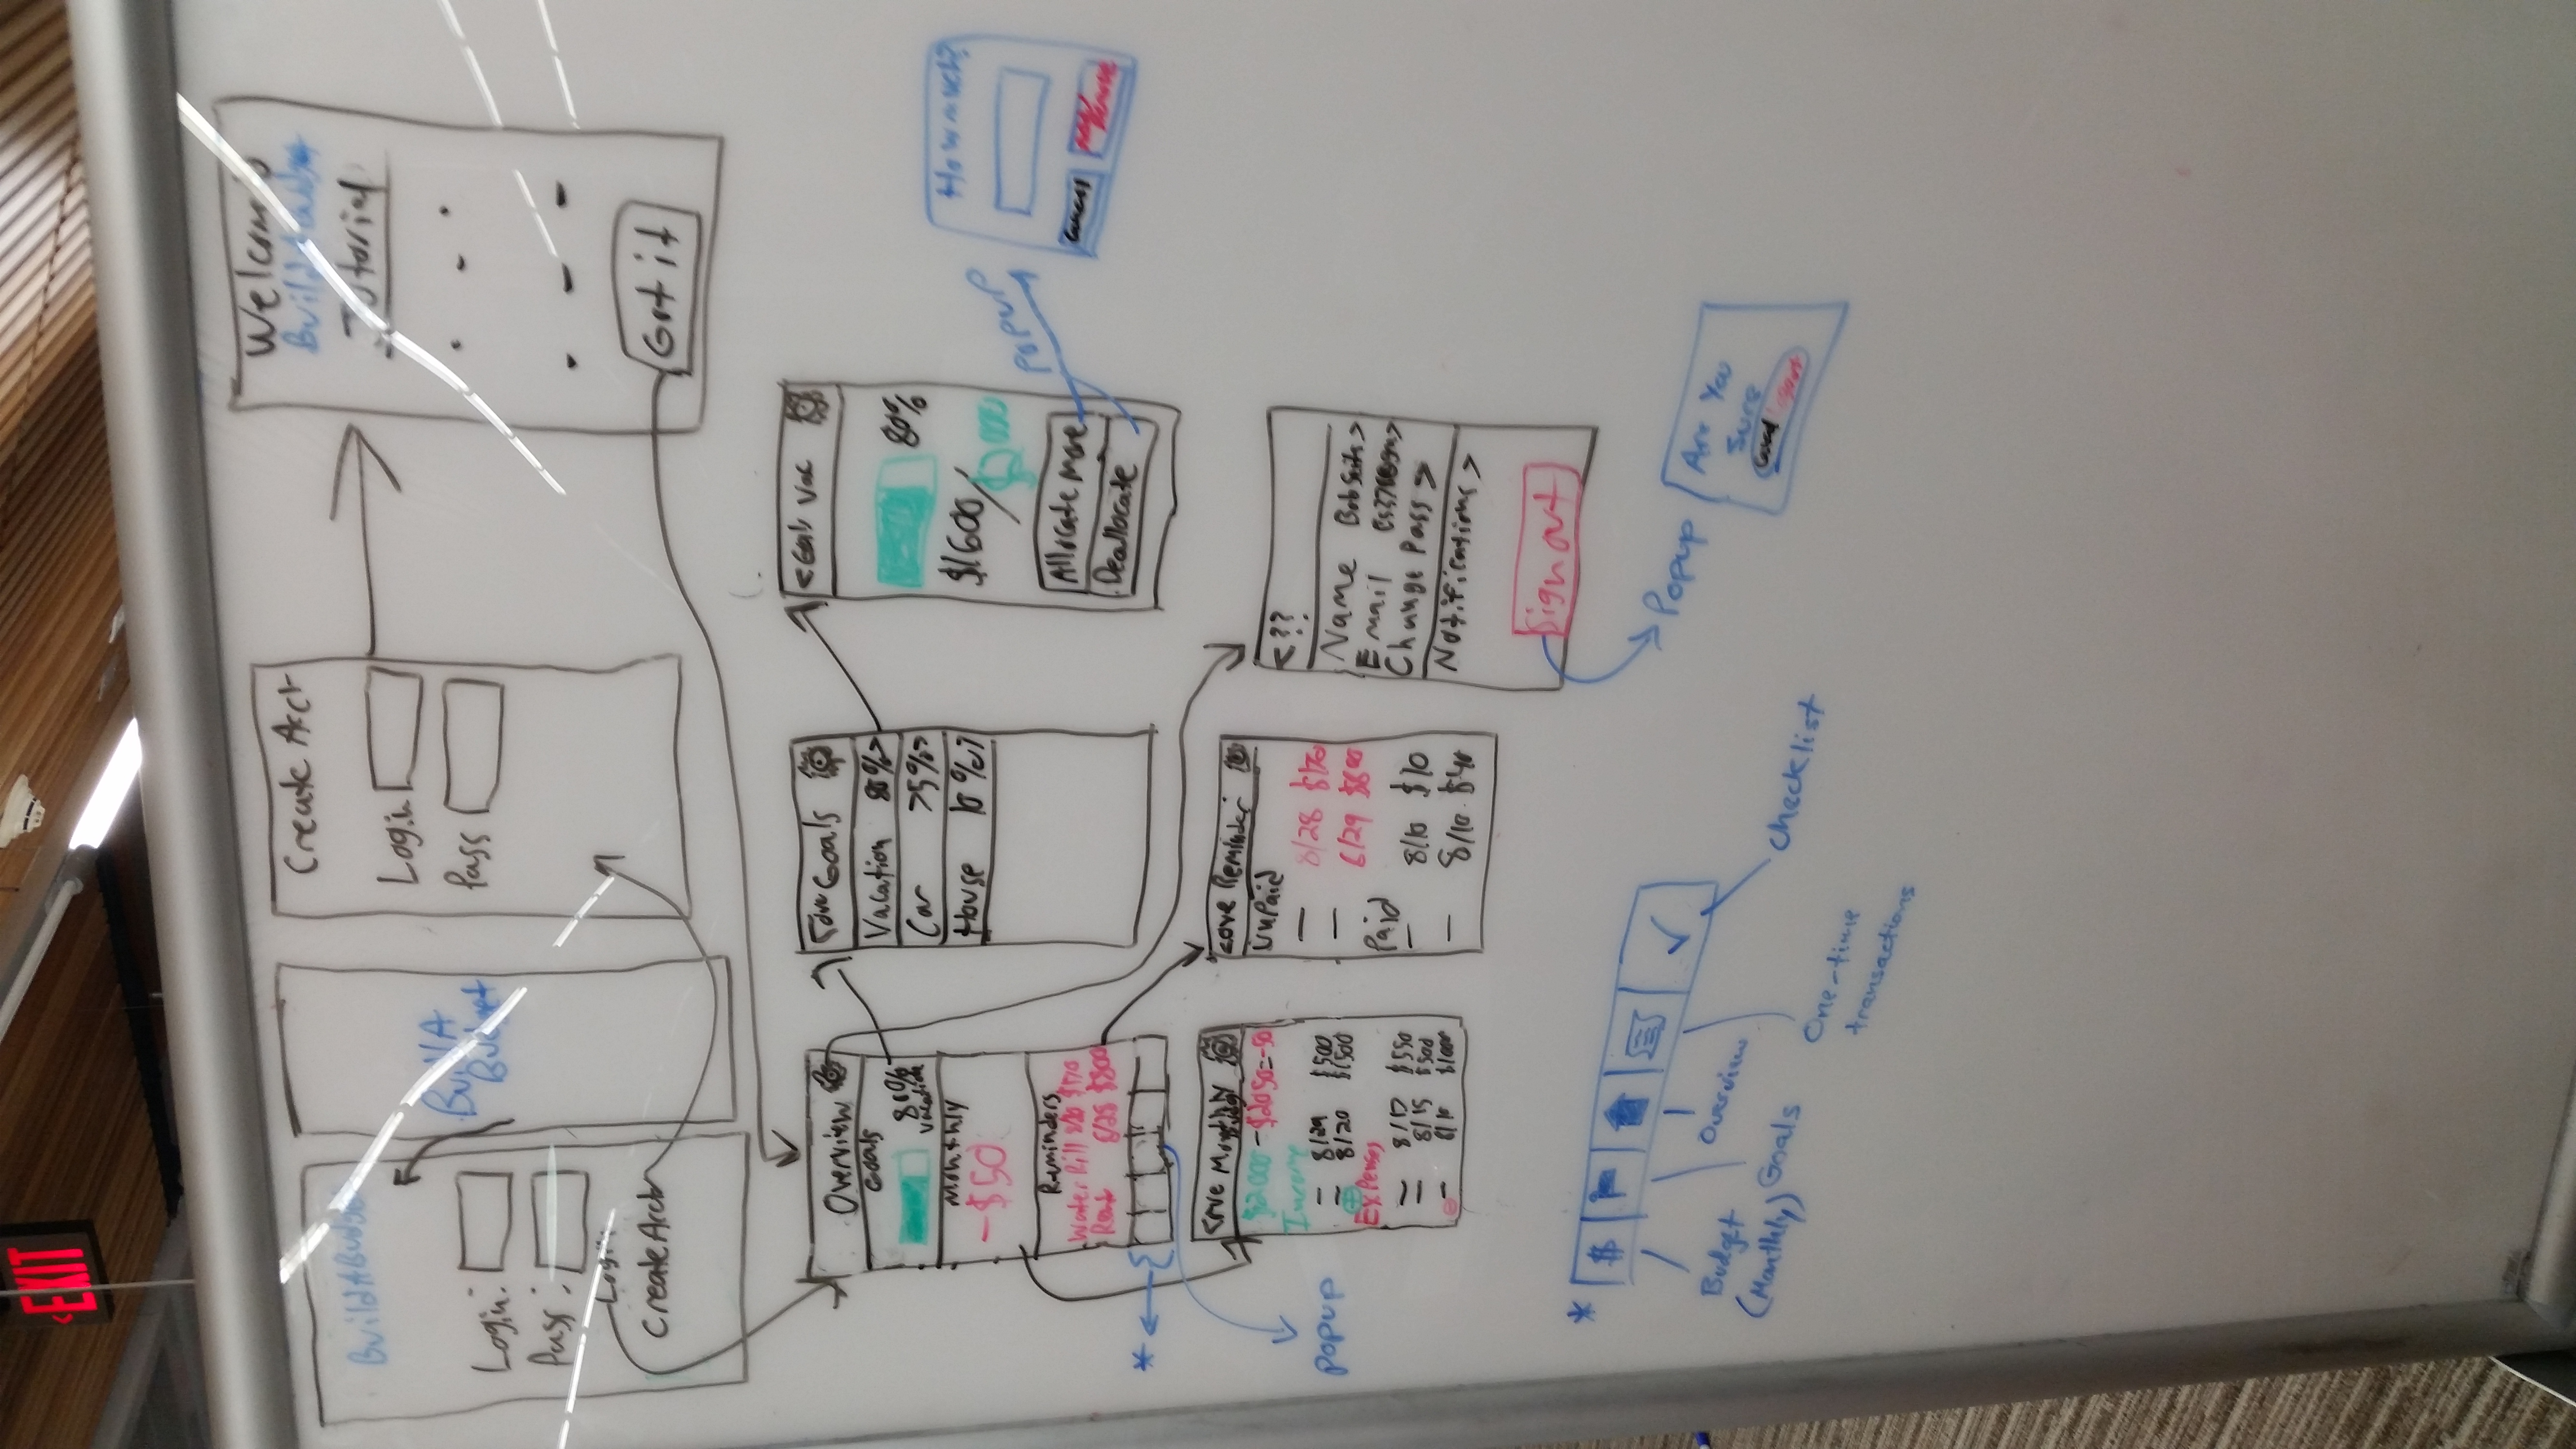 EXIT
BuildABudget
Login:
Pass:
Login
Create Acct
Build A
Budget
Create Acct
Login
Pass
Welcome
Tutorial
Got it
Overview
Goals
80%
vacation
Monthly
-$50
Reminders
Water Bill
Rent 8/28 $800
*
popup
Goals
Vacation 80%>
Car
House 10%>
80%
$1600/
Allocate More
Deallocate
popup
How much?
Cancel
Monthly
$2000-$2050=-50
Income
8/29 $500
8/20 $1500
Expenses
8/17 $550
8/15 $500
8/10 $1000
<ove Reminder
UnPaid
8/28 $170
6/29 $800
Paid
8/10 $10
8/10 $40
<??
Name
Email
Change Pass >
Notifications >
Sign out
Popup
Are You
Sure
* $
Budget
(Monthly)
Goals
Overview
One-time
transactions
checklist